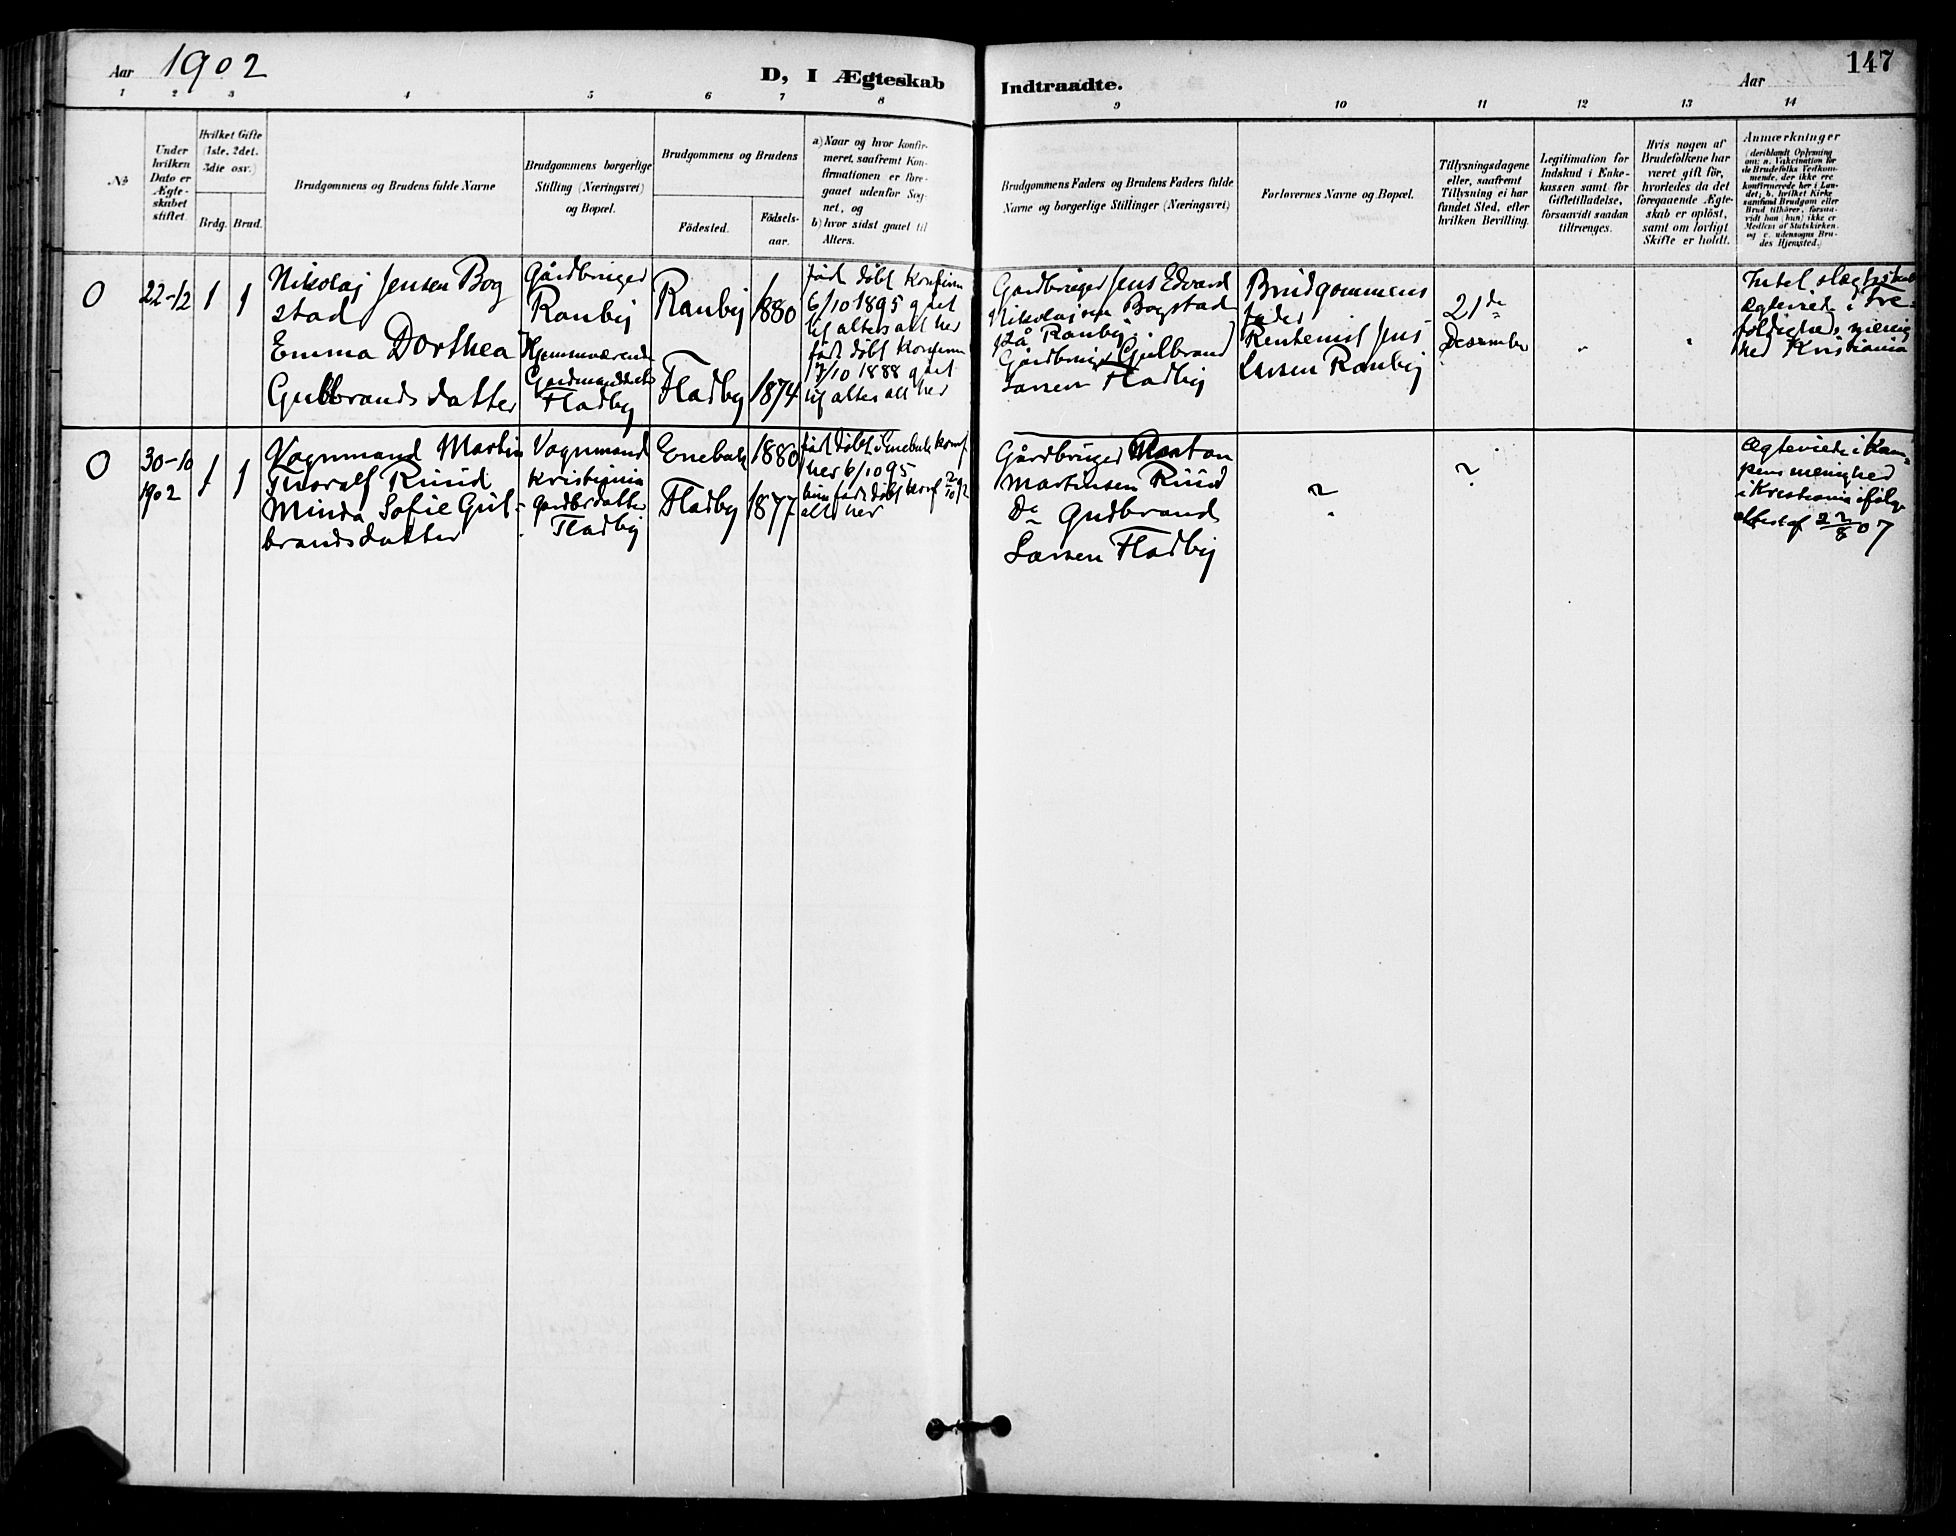 Aar 1902
D, I Ægteskab
Indtraadte.
Aar
147
1 2 3 4 5 6 7 8 9 10 11 12 13 14
No
Under
hvilken
Dato er
Ægte-
skabet
stiftet.
Hvilket Gifte
(1ste, 2det.
3die osv.)
Brdg. Brud.
Brudgommens og Brudens fulde Navne
Brudgommens borgerlige
Stilling (Næringsvei)
og Bopæl.
Brudgommens og Brudens
Födested.
Födsels-
aar.
a) Naar og hvor konfir-
meret, saafremt Kon-
firmationen er fore-
gaaet udenfor Sog-
net, og
b) hvor sidst gaaet til
Alters.
Brudgommens Faders og Brudens Faders fulde
Navne og borgerlige Stillinger (Næringsvei)
Forlovernes Navne og Bopæl.
Tillysningsdagene
eller, saafremt
Tillysning ei har
fundet Sted, efter
hvilken Bevilling.
Legitimation for
Indskud i Enke-
kassen samt for
Giftetilladelse,
forsaavidt saadan
tiltrænges.
Hvis nogen af
Brudefolkene har
været gift før,
hvorledes da det
foregaaende Ægte-
skab er opløst,
samt om lovligt
Skifte er holdt.
Anmærkninger
(deriblandt Oplysning
om: a. Vakcination for
de Brudefolks Vedkom-
mende, der ikke ere
konfirmerede her i Lan-
det; b. hvilket Kirke-
samfund Brudgom eller
Brud tilhører, forsaa-
vidt han (hun) ikke er
Medlem af Statskirken.
og c. udensogns Bru-
des Hjemsted.)
0
22-12
1 1
Nikolaj Jensen Bog
stad
Emma Dorthea
Gulbrandsdatter
Gårdbruger
Ranby
Hjemmeværende
Gårdmandsdatter
Fladby
Ranby
Fladby
1880
1874
født døbt konfirm
6/10 1895 gået
til alters alt her
født døbt konfirm
7/10 1888 gået
til alters alt her
Gårdbruger Jens Edvard
Nikolajsen Bogstad
på Ranby.
Gårdbruger Gulbrand
Larsen Fladby
Brudgommens
fader
Rentenist Jens
Larsen Ranby
21de
Desember
Intet slægtskab
Ægteviede i Tre-
foldigheds menig
hed Kristiania
0
30-10
1902
1 1
Vognmand Martin
Thoralf Ruud
Minda Sofie Gul-
brandsdatter
Vognmand
Kristiania
Gårdbrdatter
Fladby
Enebak
Fladby
1880
1877
født døbt i Enebak konf
her 6/10 95
hun født døbt konf 2/10 92
alt her
Gårdbruger Morten
Martinsen Ruud
Do Gudbrand
Larsen Fladby
?
?
Ægteviede i Kam-
pens menighed
i Kristiania ifølge
attest af 22/8 07